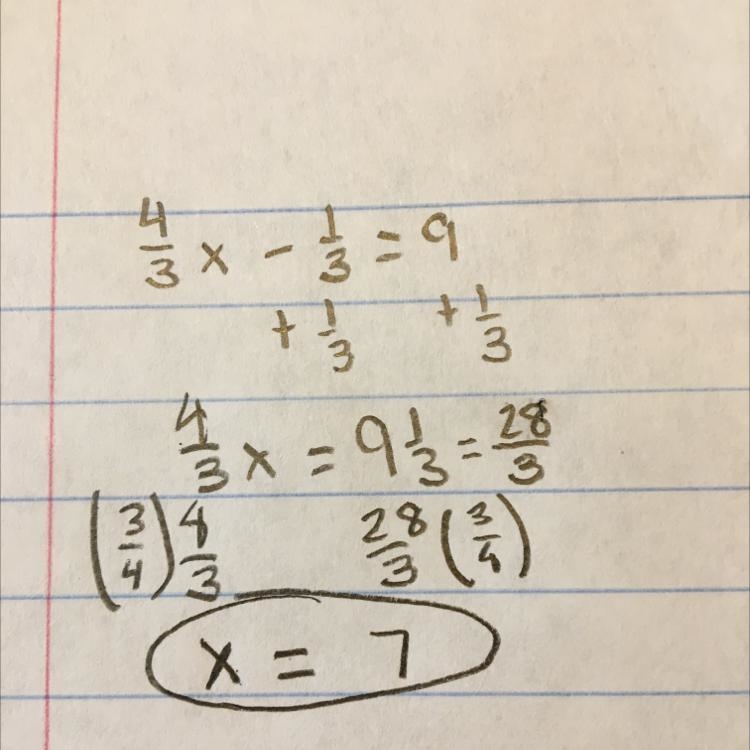 4/3 x - 1/3 = 9
+ 1/3 + 1/3
4/3 x = 9 1/3 = 28/3
(3/4) 4/3 28/3 (3/4)
x = 7